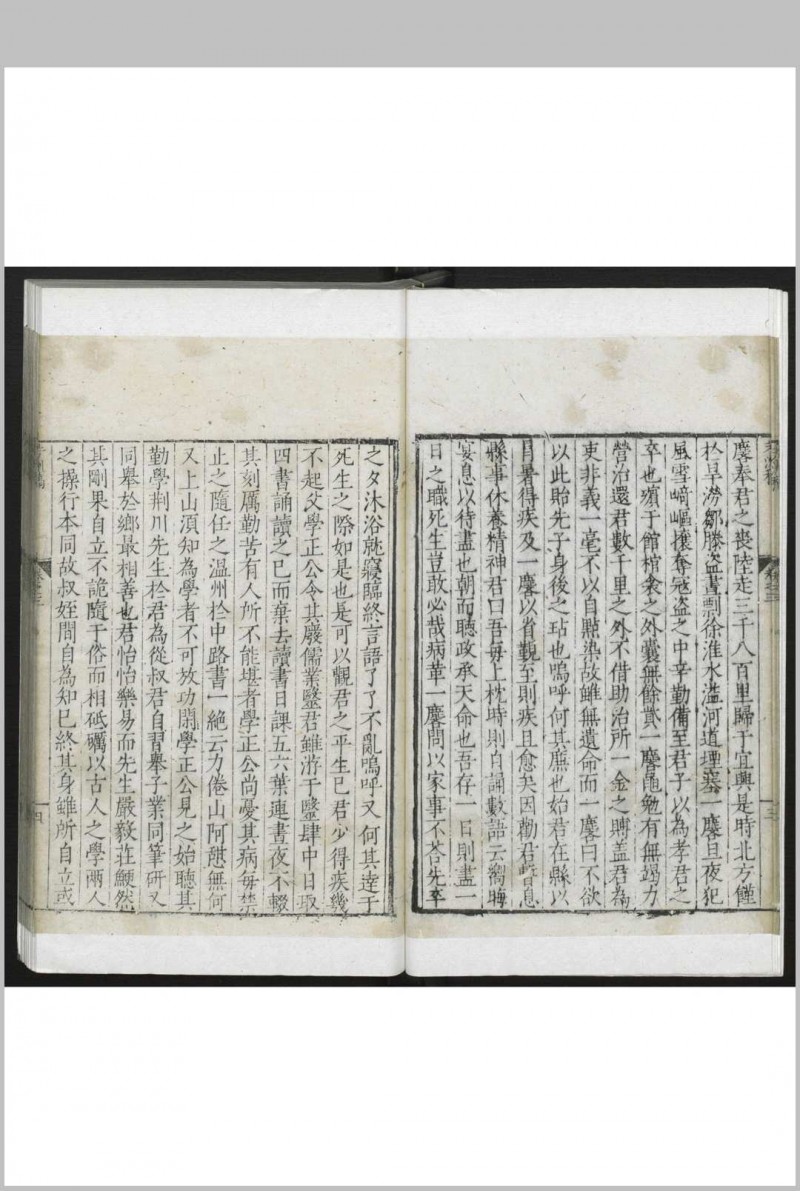 麐奉君之喪陸走三千八百里歸于宜興是時北方饉
於旱澇鄒滕盜晝剽徐淮水溢河道堙塞一麐旦夜犯
風雪﨑嶇攘奪寇盜之中辛勤備至君子以為孝君之
卒也殯于館棺衾之外囊無餘貲一麐黽勉有無竭力
營治還君數千里之外不借助治所一金之賻盖君為
吏非義一毫不以自點染故雖無遺命而一麐曰不欲
以此貽先子身後之玷也嗚呼何其廉也始君在縣以
目暑得疾及一麐以省覲至則疾且愈矣因勸君暫息
縣事休養精神君曰吾每上枕時則自誦數語云嚮晦
宴息以待盡也朝而聽政承天命也吾存一日則盡一
日之職死生豈敢必哉病革一麐問以家事不荅先卒
之夕沐浴就寢臨終言語了了不亂嗚呼又何其達于
死生之際如是也是可以觀君之平生巳君少得疾幾
不起父學正公令其廢儒業毉君雖游于毉肆中日取
四書誦讀之巳而棄去讀書日課五六葉連晝夜不輟
其刻厲勤苦有人所不能堪者學正公尚憂其病每禁
止之隨任之温州於中路書一絶云力倦山阿憇無何
又上山須知為學者不可放功閒學正公見之始聽其
勤學荆川先生於君為從叔君自習舉子業同筆研又
同舉於鄉最相善也君怡怡樂易而先生嚴毅莊鯁然
其剛果自立不詭隨于俗而相砥礪以古人之學兩人
之操行本同故叔姪間自為知巳終其身雖所自立或
三
四